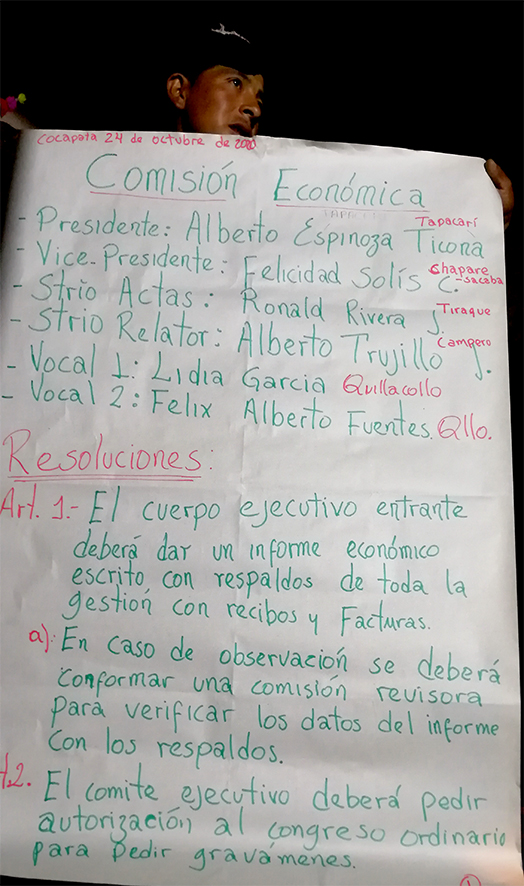 Cocapata 24 de octubre de 2020
Comisión Económica
- Presidente: Alberto Espinoza Ticona Tapacarí
- Vice-Presidente: Felicidad Solís C. Chapare-Sacaba
- Strio Actas: Ronald Rivera J. Tiraque
- Strio Relator: Alberto Trujillo J. Campero
- Vocal 1: Lidia Garcia Quillacollo
- Vocal 2: Felix Alberto Fuentes. Qllo.
Resoluciones:
Art. 1.- El cuerpo ejecutivo entrante
deberá dar un informe económico
escrito, con respaldos de toda la
gestión con recibos y Facturas.
a): En caso de observación se deberá
conformar una comisión revisora
para verificar los datos del informe
con los respaldos.
t.2. El comite ejecutivo deberá pedir
autorización al congreso ordinario
para Pedir gravámenes.